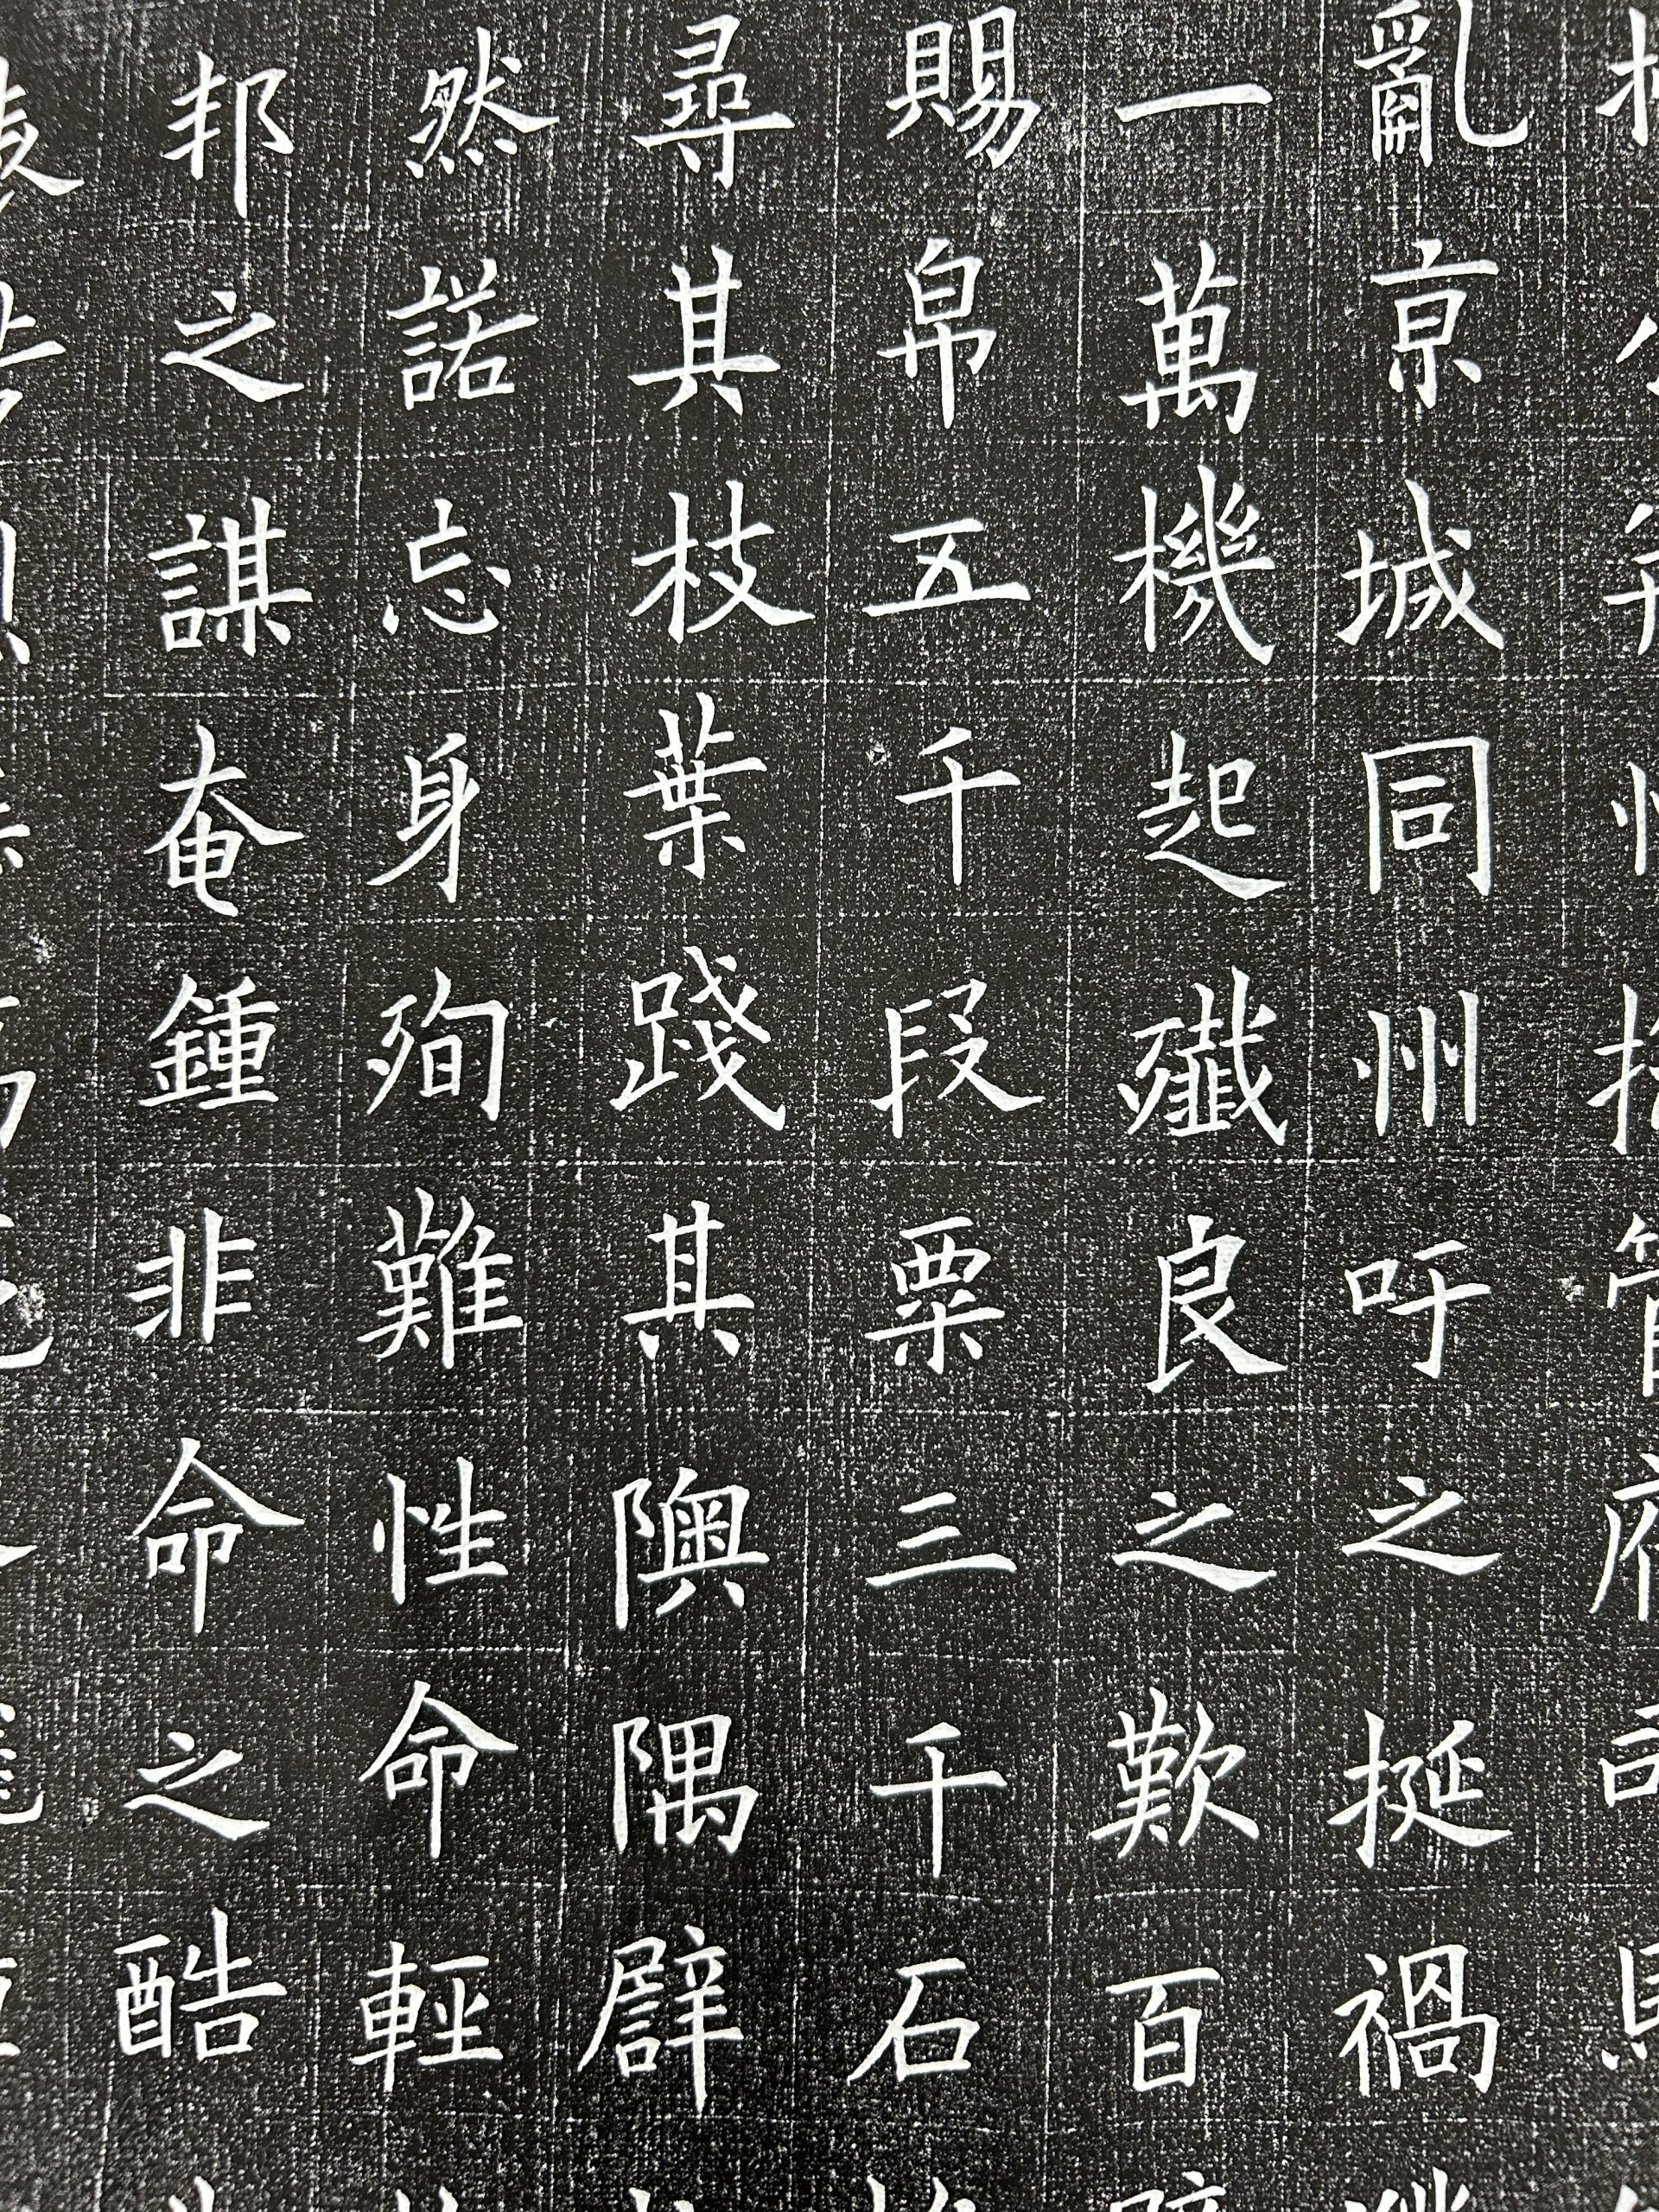 亂京城同州呼之挺禍
一萬機起殲良之歎百
賜帛五千段粟三千石
尋其枝葉踐其隩隅譬
然諾忘身殉難性命輕
邦之謀奄鍾非命之酷